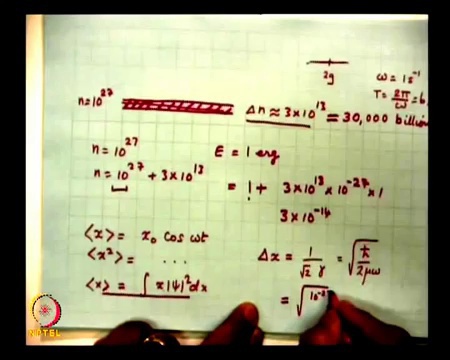 2g
ω = 1 s⁻¹
T = 2π/ω = 6.
n = 10²⁷
Δn ≈ 3 × 10¹³ = 30,000 billion
n = 10²⁷
E = 1 erg
n = 10²⁷ + 3 × 10¹³
= 1 + 3 × 10¹³ × 10⁻²⁷ × 1
3 × 10⁻¹⁴
⟨x⟩ = x₀ cos ωt
⟨x²⟩ = . . .
Δx = 1/(√2 γ) = √(ħ/2μω)
⟨x⟩ = ∫ x|ψ|² dx
= √10⁻²
NPTEL